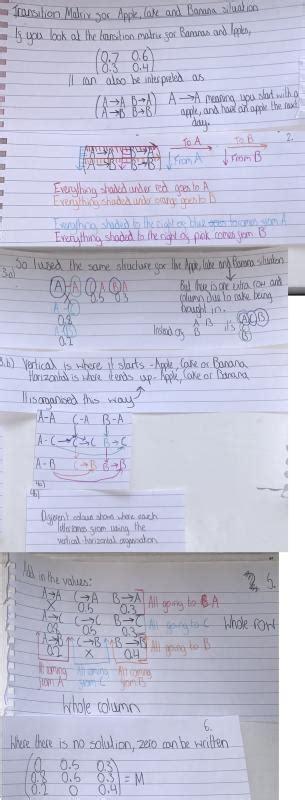 Transition Matrix for Apple, Cake and Banana situation
If you look at the transition matrix for Bananas and Apples,
(0.7 0.6)
(0.3 0.4)
It can also be interpreted as
(A→A B→A) A→A meaning you start with a
(A→B B→B) apple, and have an apple the next
day.
2.
To A To B
From A From B
Everything shaded under red goes to A
Everything shaded under orange goes to B
Everything shaded to the right of blue comes from A
Everything shaded to the right of pink comes from B
So I used the same structure for the Apple, Cake and Banana situation
3a)
But there is one extra row and
0.5 0.3
column due to cake being
brought in.
A-C
0.8
Instead of A B it's A C B
0.2
3.b) Vertical is where it starts - Apple, Cake or Banana
Horizontal is where it ends up - Apple, Cake or Banana
It is organised this way
A-A C-A B-A
A-C C→C B→C
A-B C→B B→B
Different colours shown where each
letter comes from using the
vertical-horizontal organisation
5.
Add in the values:
A→A C→A B→A All going to A
X 0.5 0.3
A→C C→C B→C All going to C Whole row
0.5 0.3
A→B C→B B→B All going to B
0.2 X 0.4
All coming All coming All coming
from A from C from B
Whole column
6.
Where there is no solution, zero can be written
(0 0.5 0.3)
(0.8 0.5 0.3) = M
(0.2 0 0.4)